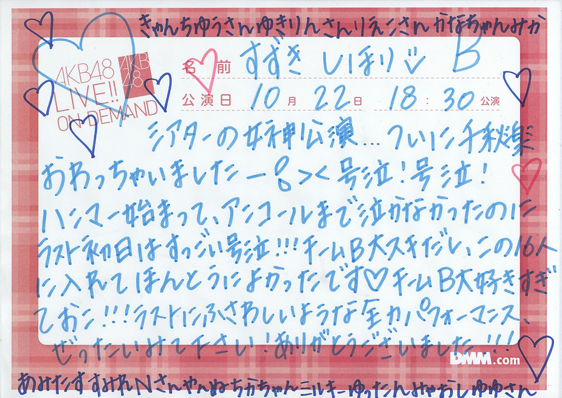 きゃんちゅうさんゆきりんさんりえこさんかなちゃんみか
AKB48
LIVE!!
ON DEMAND
AKB
48
名前 すずき しほり B
公演日 10月 22日 18:30公演
シアターの女神公演...ついに千秋楽
おわっちゃいましたー 号泣!号泣!
ハンマー始まって、アンコールまで泣かなかったのに
ラスト初日はすっごい号泣!!!チームB大スキだし、この16人
に入れてほんとうによかったです♡チームB大好きすぎ
ておこ!!!ラストにふさわしいような全力パフォーマンス、
ぜったいみて下さい!ありがとうございました!!!
DMM.com
あみたすすみれNさんやんぬちかちゃんミルキーゆったんみゃおしゆゆさん